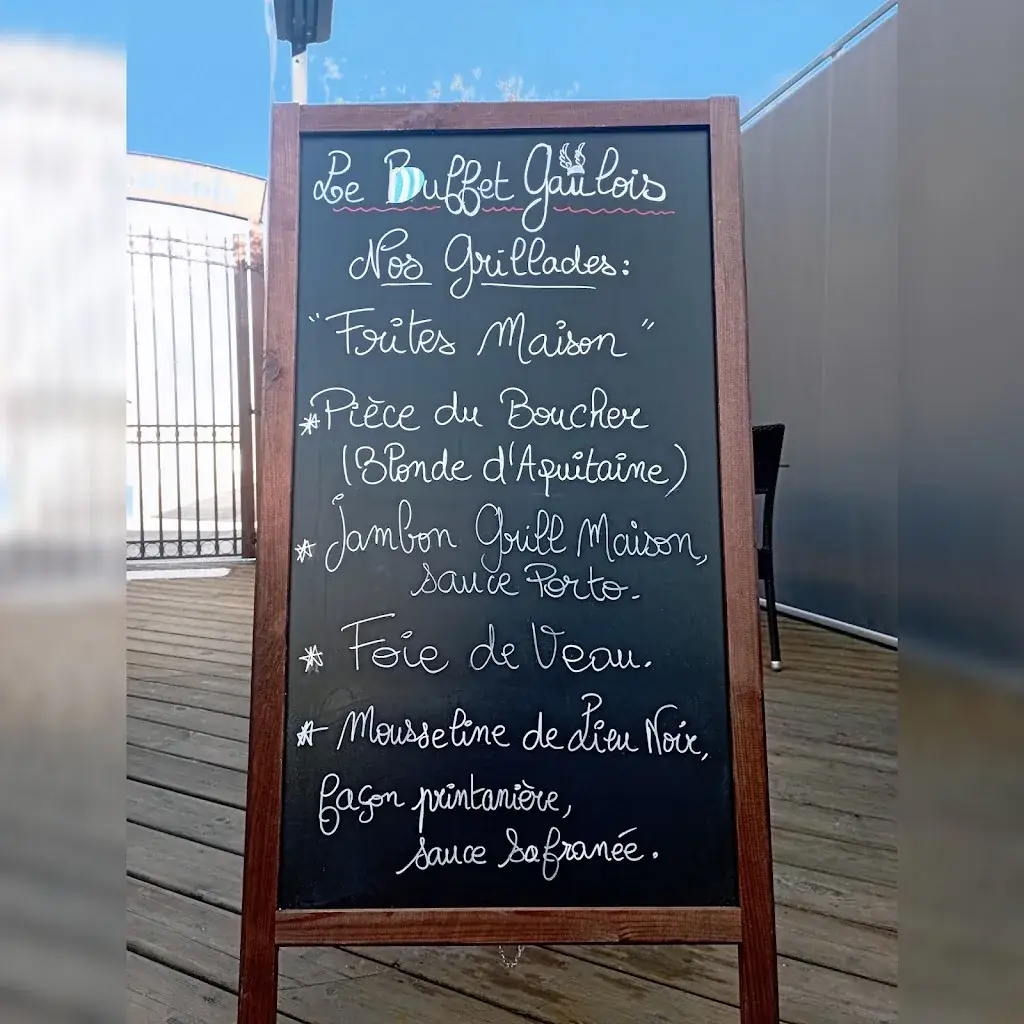 Le Buffet Gaulois
Nos Grillades:
"Frites Maison"
* Pièce du Boucher
(Blonde d'Aquitaine)
* Jambon Grill Maison,
sauce Porto.
* Foie de Veau.
* Mousseline de Lieu Noir,
façon printanière,
sauce Safranée.